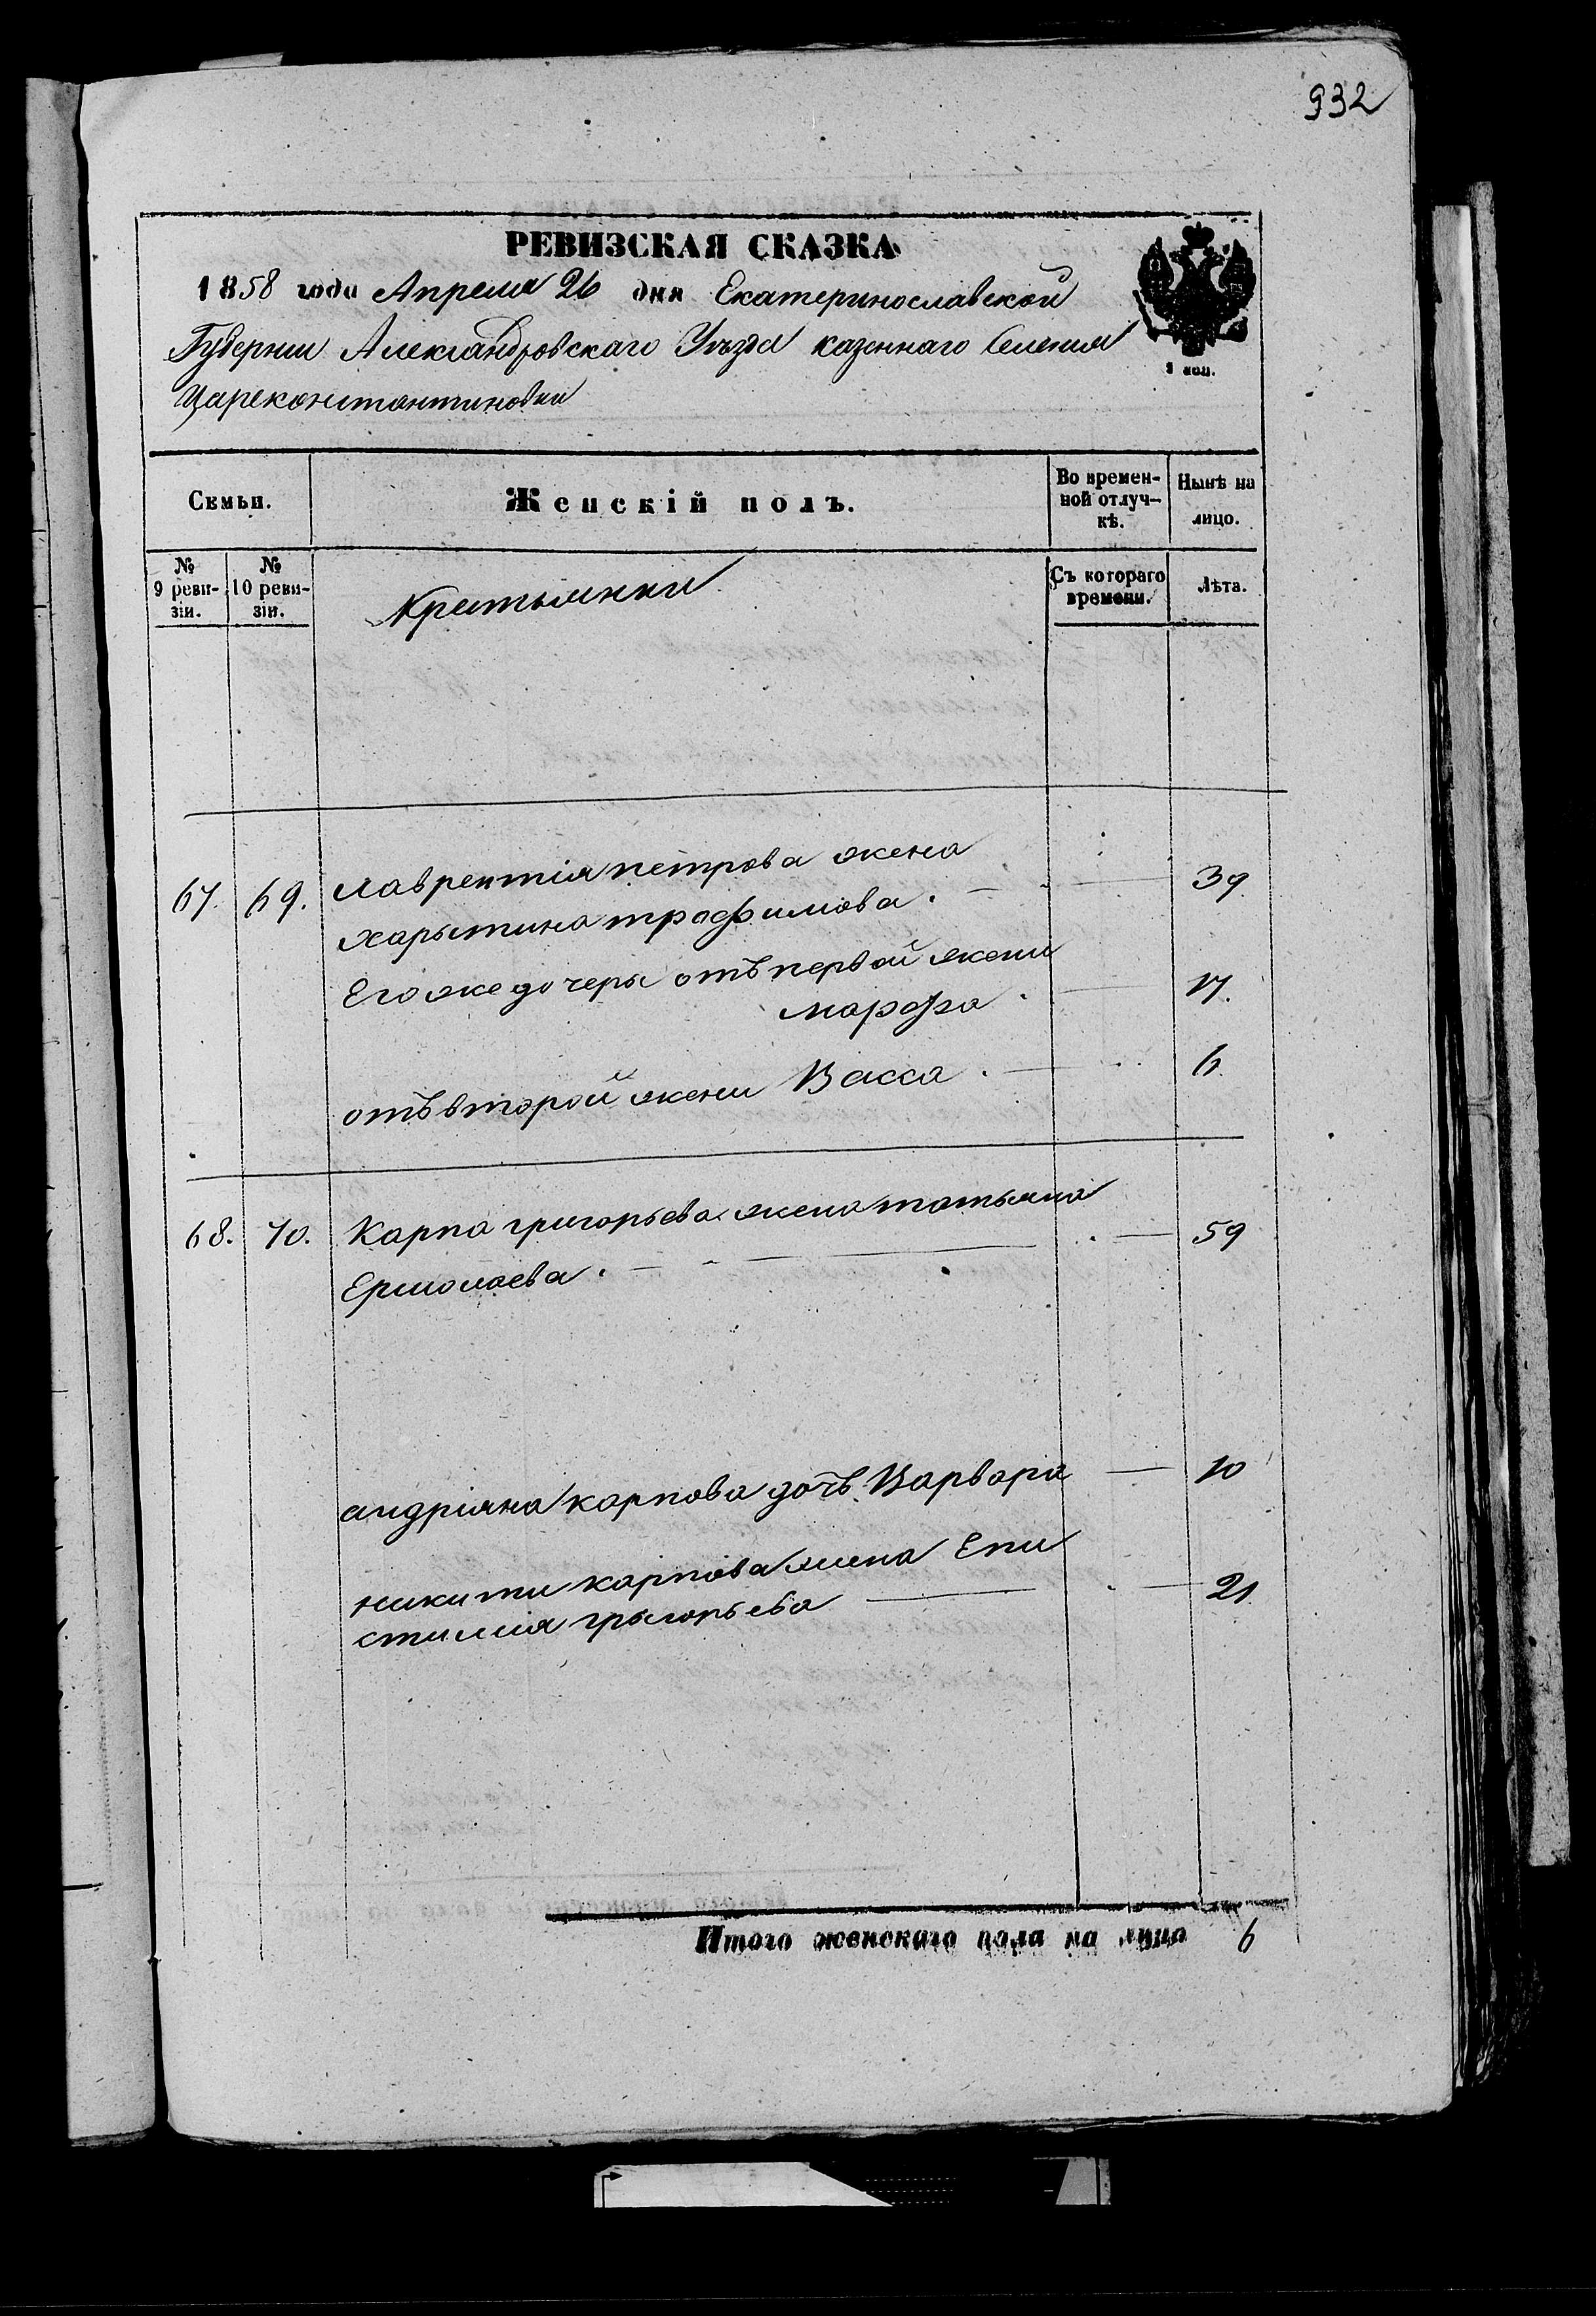 932
РЕВИЗСКАЯ СКАЗКА
1858 года Апреля 26 дня Екатеринославской
Губернии Александровскаго Уѣзда казеннаго Селения
Цареконстантиновки
1 коп.
Семьи.
Женскій полъ.
Во времен-
ной отлуч-
кѣ.
Нынѣ на
лицо.
№
9 реви-
зіи.
№
10 реви-
зіи.
Крестьянки
Съ котораго
времени.
Лѣта.
67. 69. Лаврентія петрова жена
харытина трофимова. 39
Его же дочеры отъ первой жены
марфа. 17.
отъ второй жены Васса. 6.
68. 70. Карпа григорьева жена татьяна 59
Ермолаева.
андріяна карпова дочь Варвара 10
никиты карпова жена Епи
стимия грыгорьева 21.
Итого женскаго пола на лицо 6